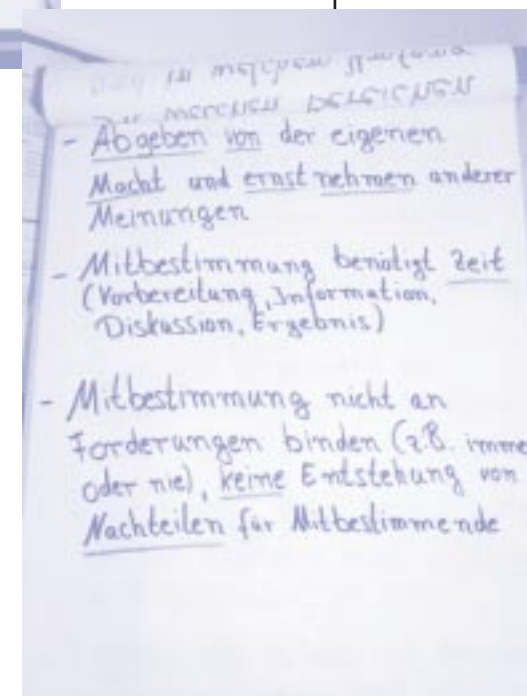 - Abgeben von der eigenen
Macht und ernst nehmen anderer
Meinungen
- Mitbestimmung benötigt Zeit
(Vorbereitung, Information,
Diskussion, Ergebnis)
- Mitbestimmung nicht an
Forderungen binden (z.B. imme
oder nie), keine Entstehung von
Nachteilen für Mitbestimmende